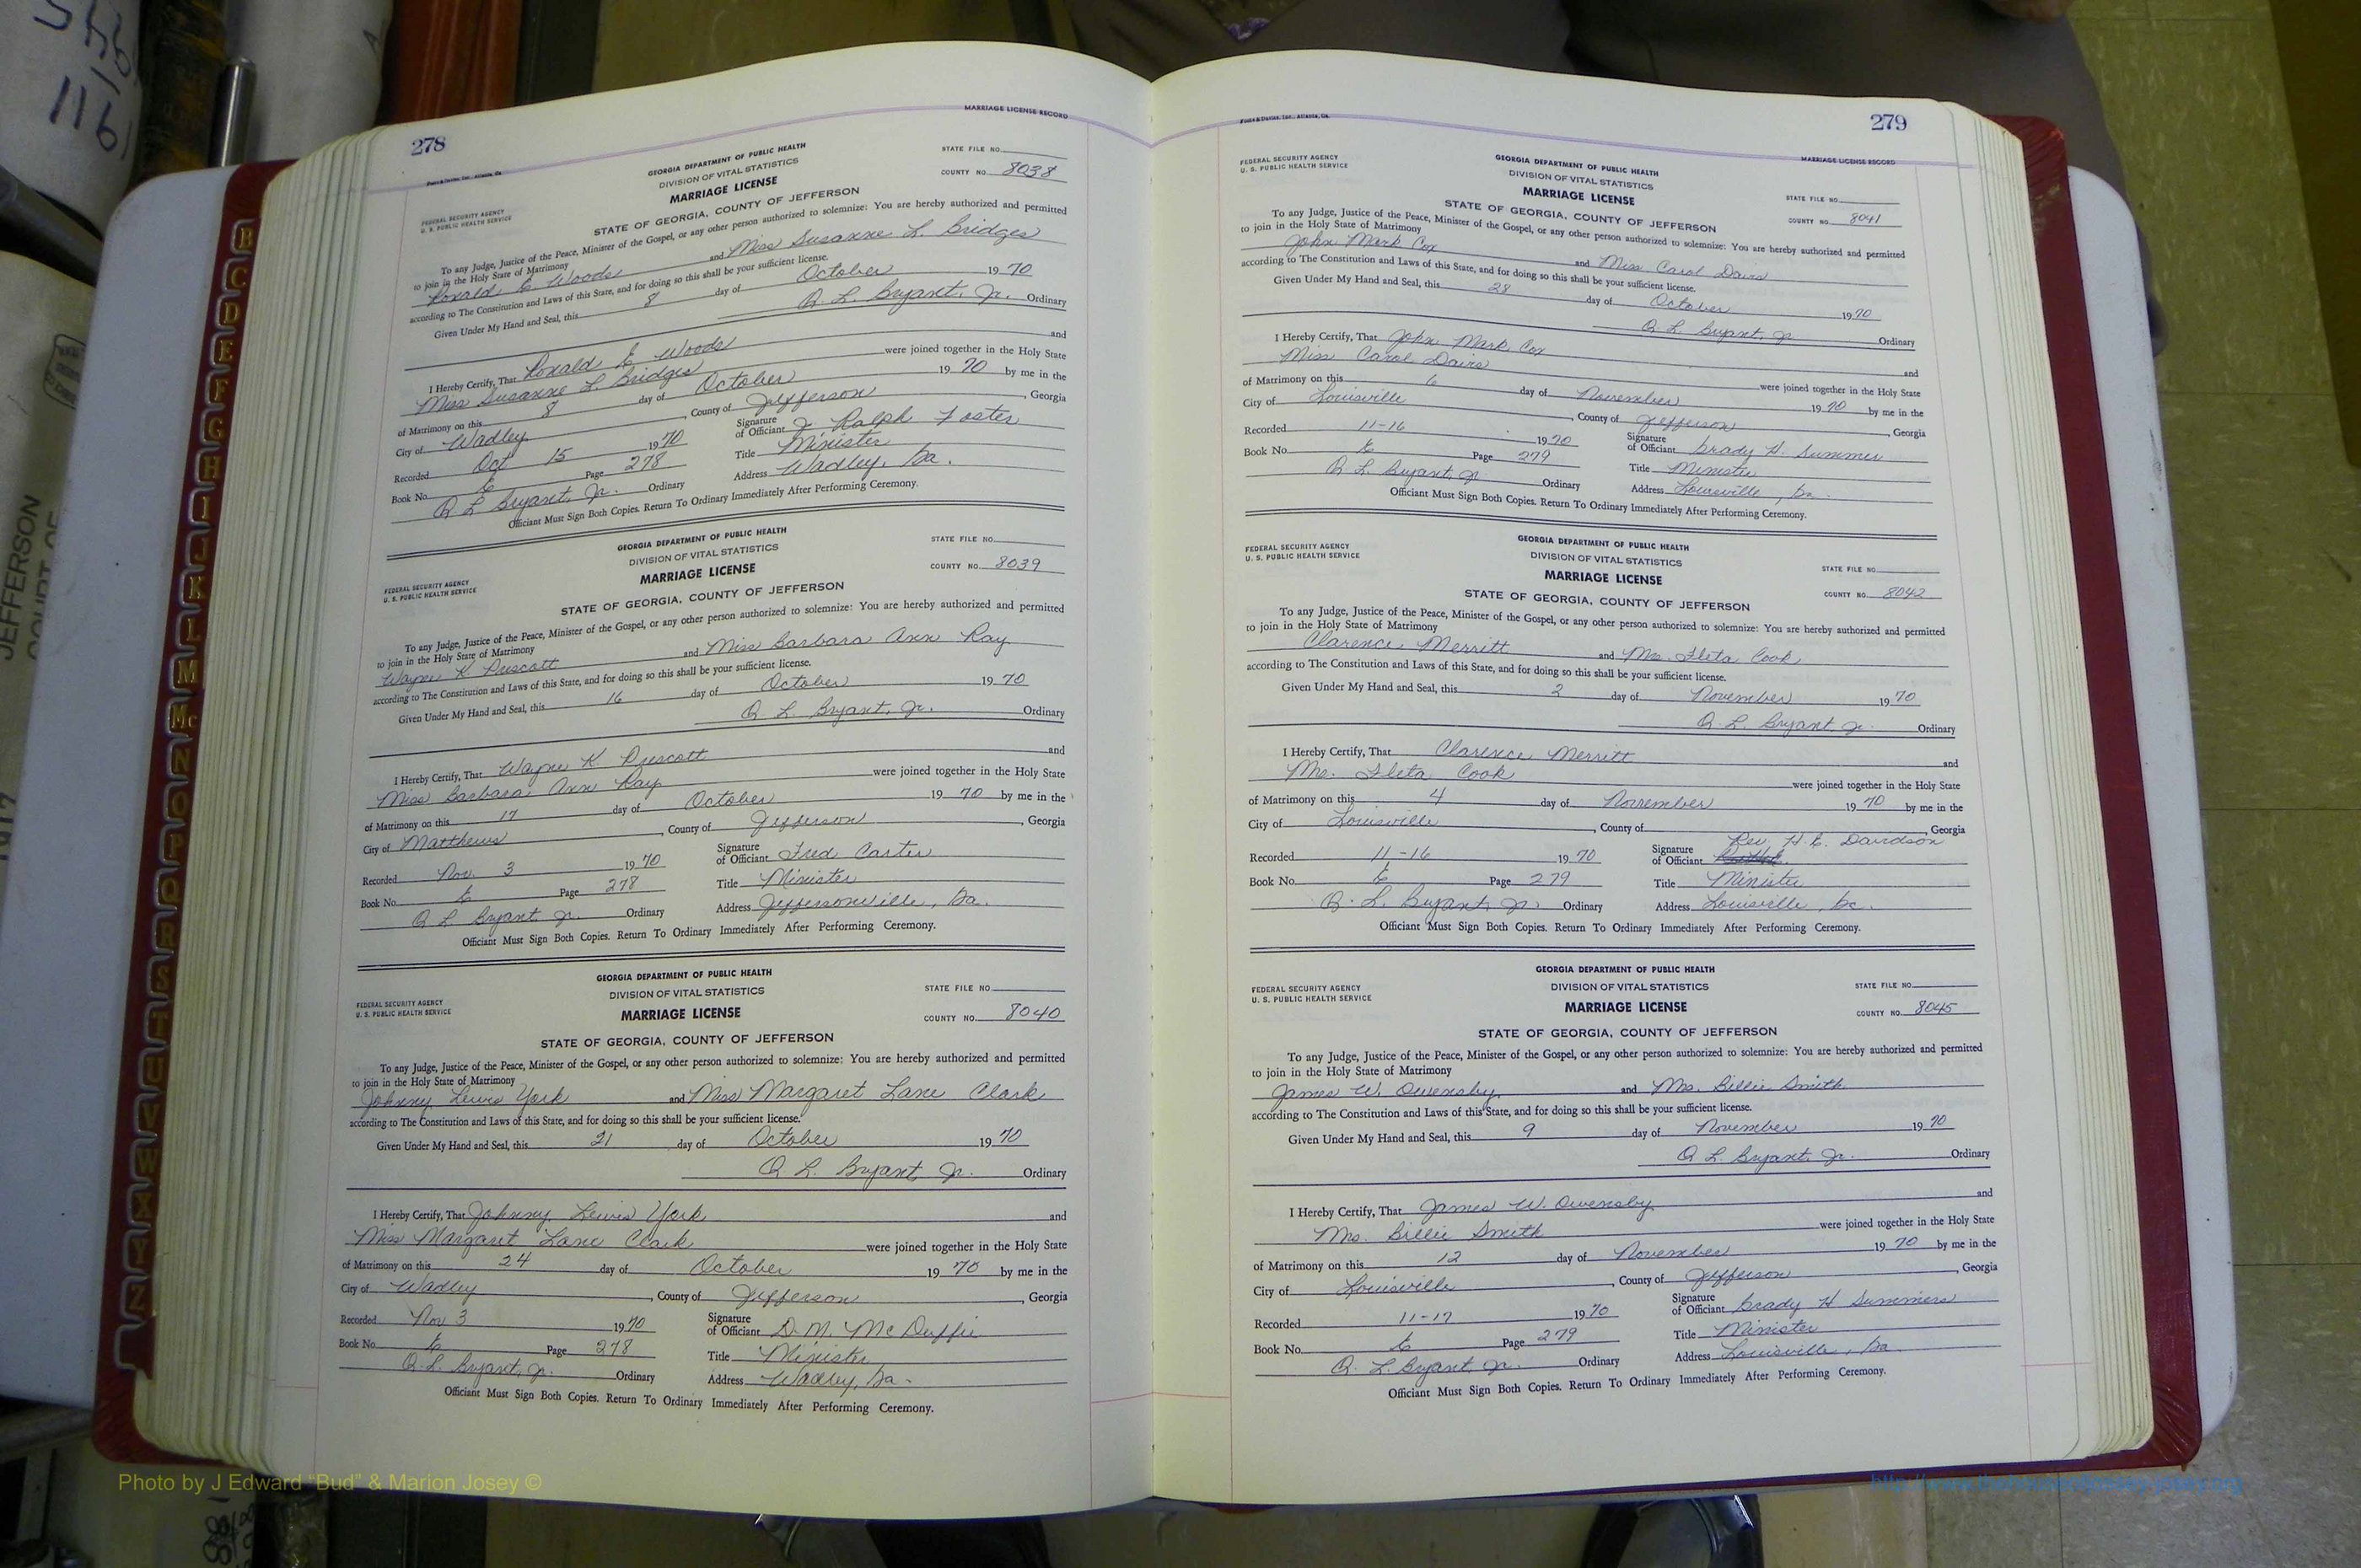 278
MARRIAGE LICENSE RECORD
Foote & Davies, Inc., Atlanta, Ga.
GEORGIA DEPARTMENT OF PUBLIC HEALTH
DIVISION OF VITAL STATISTICS
MARRIAGE LICENSE
STATE OF GEORGIA, COUNTY OF JEFFERSON
FEDERAL SECURITY AGENCY
U. S. PUBLIC HEALTH SERVICE
STATE FILE NO.
COUNTY NO. 8038
To any Judge, Justice of the Peace, Minister of the Gospel, or any other person authorized to solemnize: You are hereby authorized and permitted
to join in the Holy State of Matrimony
Ronald E. Woods and Miss Susanne L. Bridges
according to The Constitution and Laws of this State, and for doing so this shall be your sufficient license.
Given Under My Hand and Seal, this 8 day of October 1970
Q. L. Bryant, Jr. Ordinary
I Hereby Certify, That Ronald E Woods and
Miss Susanne L. Bridges were joined together in the Holy State
of Matrimony on this 8 day of October 1970 by me in the
City of Wadley, County of Jefferson, Georgia
Recorded Oct 15 1970
Signature of Officiant J. Ralph Foster
Book No. E Page 278
Title Minister
Q L Bryant, Jr. Ordinary
Address Wadley, Ga.
Officiant Must Sign Both Copies. Return To Ordinary Immediately After Performing Ceremony.
GEORGIA DEPARTMENT OF PUBLIC HEALTH
DIVISION OF VITAL STATISTICS
MARRIAGE LICENSE
STATE OF GEORGIA, COUNTY OF JEFFERSON
FEDERAL SECURITY AGENCY
U. S. PUBLIC HEALTH SERVICE
STATE FILE NO.
COUNTY NO. 8039
To any Judge, Justice of the Peace, Minister of the Gospel, or any other person authorized to solemnize: You are hereby authorized and permitted
to join in the Holy State of Matrimony
Wayne K Prescott and Miss Barbara Ann Ray
according to The Constitution and Laws of this State, and for doing so this shall be your sufficient license.
Given Under My Hand and Seal, this 16 day of October 1970
Q. L. Bryant, Jr. Ordinary
I Hereby Certify, That Wayne K Prescott and
Miss Barbara Ann Ray were joined together in the Holy State
of Matrimony on this 17 day of October 1970 by me in the
City of Matthews, County of Jefferson, Georgia
Recorded Nov. 3 1970
Signature of Officiant Fred Carter
Book No. E Page 278
Title Minister
Q L Bryant Jr. Ordinary
Address Jeffersonville, Ga.
Officiant Must Sign Both Copies. Return To Ordinary Immediately After Performing Ceremony.
GEORGIA DEPARTMENT OF PUBLIC HEALTH
DIVISION OF VITAL STATISTICS
MARRIAGE LICENSE
STATE OF GEORGIA, COUNTY OF JEFFERSON
FEDERAL SECURITY AGENCY
U. S. PUBLIC HEALTH SERVICE
STATE FILE NO.
COUNTY NO. 8040
To any Judge, Justice of the Peace, Minister of the Gospel, or any other person authorized to solemnize: You are hereby authorized and permitted
to join in the Holy State of Matrimony
Johnny Lewis York and Miss Margaret Lane Clark
according to The Constitution and Laws of this State, and for doing so this shall be your sufficient license.
Given Under My Hand and Seal, this 21 day of October 1970
Q L. Bryant Jr. Ordinary
I Hereby Certify, That Johnny Lewis York and
Miss Margaret Lane Clark were joined together in the Holy State
of Matrimony on this 24 day of October 1970 by me in the
City of Wadley, County of Jefferson, Georgia
Recorded Nov 3 1970
Signature of Officiant D. M. McDuffie
Book No. E Page 278
Title Minister
Q. L. Bryant, Jr. Ordinary
Address Wadley, Ga.
Officiant Must Sign Both Copies. Return To Ordinary Immediately After Performing Ceremony.
Foote & Davies, Inc., Atlanta, Ga.
279
MARRIAGE LICENSE RECORD
FEDERAL SECURITY AGENCY
U. S. PUBLIC HEALTH SERVICE
GEORGIA DEPARTMENT OF PUBLIC HEALTH
DIVISION OF VITAL STATISTICS
MARRIAGE LICENSE
STATE OF GEORGIA, COUNTY OF JEFFERSON
STATE FILE NO.
COUNTY NO. 8041
To any Judge, Justice of the Peace, Minister of the Gospel, or any other person authorized to solemnize: You are hereby authorized and permitted
to join in the Holy State of Matrimony
John Mark Cox and Miss Carol Davis
according to The Constitution and Laws of this State, and for doing so this shall be your sufficient license.
Given Under My Hand and Seal, this 28 day of October 1970
Q. L. Bryant, Jr Ordinary
I Hereby Certify, That John Mark Cox and
Miss Carol Davis were joined together in the Holy State
of Matrimony on this 6 day of November 1970 by me in the
City of Louisville, County of Jefferson, Georgia
Recorded 11-16 1970
Signature of Officiant Grady H. Summer
Book No. E Page 279
Title Minister
Q L. Bryant, Jr Ordinary
Address Louisville, Ga.
Officiant Must Sign Both Copies. Return To Ordinary Immediately After Performing Ceremony.
FEDERAL SECURITY AGENCY
U. S. PUBLIC HEALTH SERVICE
GEORGIA DEPARTMENT OF PUBLIC HEALTH
DIVISION OF VITAL STATISTICS
MARRIAGE LICENSE
STATE OF GEORGIA, COUNTY OF JEFFERSON
STATE FILE NO.
COUNTY NO. 8042
To any Judge, Justice of the Peace, Minister of the Gospel, or any other person authorized to solemnize: You are hereby authorized and permitted
to join in the Holy State of Matrimony
Clarence Merritt and Mrs. Fleta Cook
according to The Constitution and Laws of this State, and for doing so this shall be your sufficient license.
Given Under My Hand and Seal, this 2 day of November 1970
Q. L. Bryant Jr. Ordinary
I Hereby Certify, That Clarence Merritt and
Mrs. Fleta Cook were joined together in the Holy State
of Matrimony on this 4 day of November 1970 by me in the
City of Louisville, County of , Georgia
Recorded 11-16 1970
Signature of Officiant Rev H. E. Davidson
Book No. E Page 279
Title Minister
Q. L. Bryant, Jr. Ordinary
Address Louisville, Ga.
Officiant Must Sign Both Copies. Return To Ordinary Immediately After Performing Ceremony.
FEDERAL SECURITY AGENCY
U. S. PUBLIC HEALTH SERVICE
GEORGIA DEPARTMENT OF PUBLIC HEALTH
DIVISION OF VITAL STATISTICS
MARRIAGE LICENSE
STATE OF GEORGIA, COUNTY OF JEFFERSON
STATE FILE NO.
COUNTY NO. 8045
To any Judge, Justice of the Peace, Minister of the Gospel, or any other person authorized to solemnize: You are hereby authorized and permitted
to join in the Holy State of Matrimony
James W. Owensby and Mrs. Billie Smith
according to The Constitution and Laws of this State, and for doing so this shall be your sufficient license.
Given Under My Hand and Seal, this 9 day of November 1970
Q L. Bryant, Jr. Ordinary
I Hereby Certify, That James W. Owensby and
Mrs. Billie Smith were joined together in the Holy State
of Matrimony on this 12 day of November 1970 by me in the
City of Louisville, County of Jefferson, Georgia
Recorded 11-17 1970
Signature of Officiant Grady H Summers
Book No. E Page 279
Title Minister
Q. L. Bryant, Jr. Ordinary
Address Louisville, Ga.
Officiant Must Sign Both Copies. Return To Ordinary Immediately After Performing Ceremony.
B
C
D
E
F
G
H
I
J
K
L
M
Mc
N
O
P
Q
R
S
T
U
V
W
X
Y
Z
JEFFERSON
COURT OF
Photo by J Edward “Bud” & Marion Josey ©